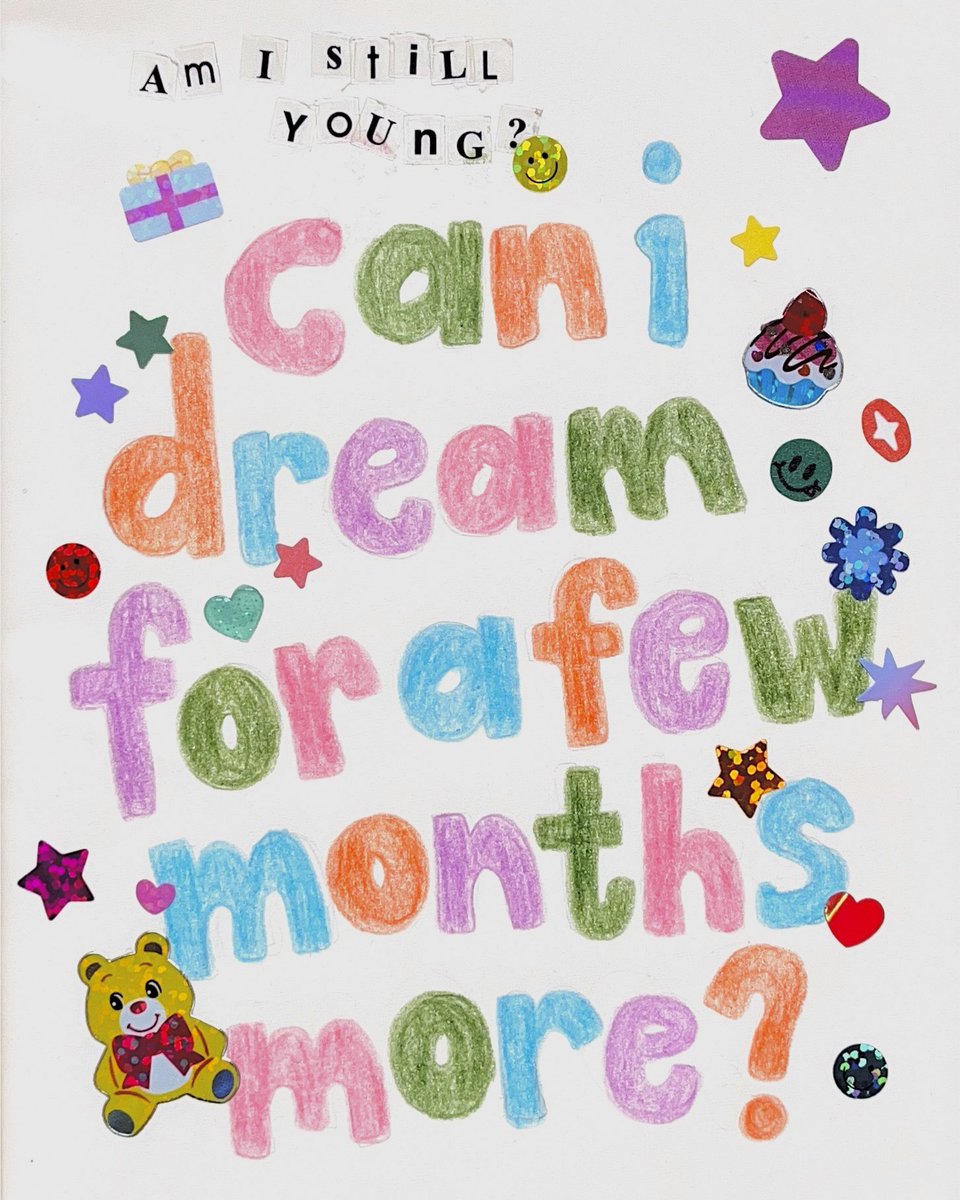 Am I stiLL
YOUnG?
can i
dream
for a few
months
more?